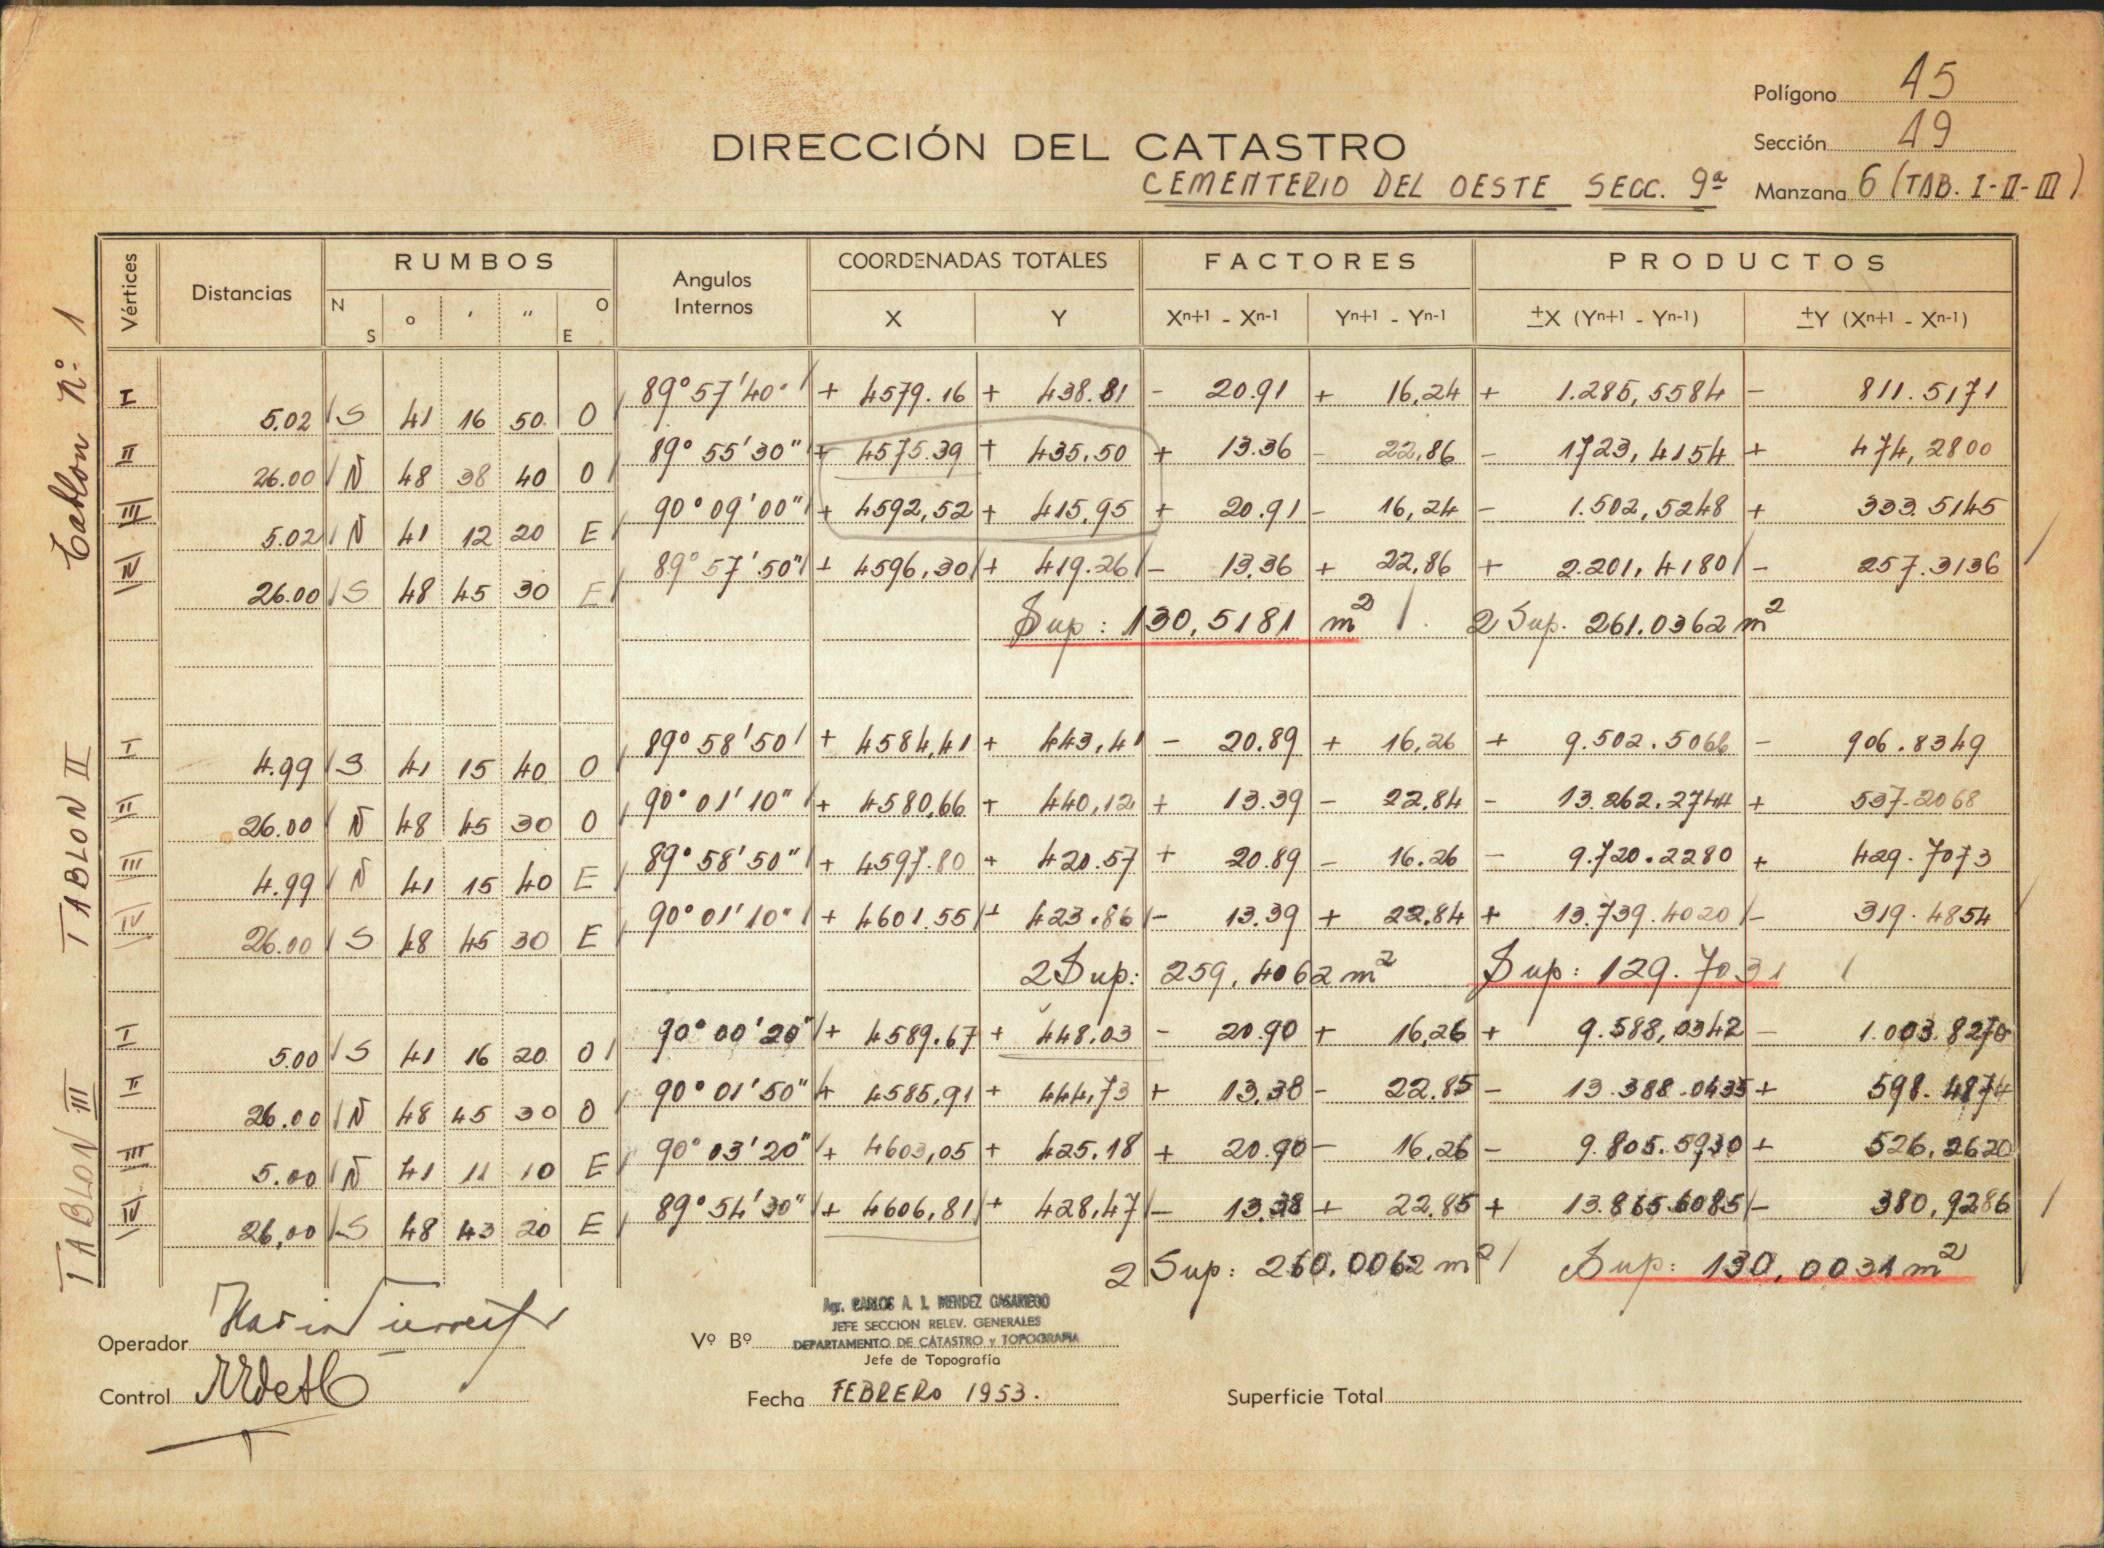 Polígono 45
DIRECCIÓN DEL CATASTRO
Sección 49
CEMENTERIO DEL OESTE SECC. 9ª
Manzana 6 (TAB. I-II-III)
Vértices Distancias RUMBOS Angulos Internos COORDENADAS TOTALES FACTORES PRODUCTOS
N S ° ' " O E X Y Xn+1 - Xn-1 Yn+1 - Yn-1 ±X (Yn+1 - Yn-1) ±Y (Xn+1 - Xn-1)
Tablon Nº 1
I 89°57'40" + 4579.16 + 438.81 - 20.91 + 16,24 + 1.285,5584 - 811.5171
5.02 S 41 16 50 O
II 89°55'30" + 4575.39 + 435.50 + 13.36 - 22,86 - 1723,4154 + 474,2800
26.00 N 48 38 40 O
III 90°09'00" + 4592,52 + 415,95 + 20.91 - 16,24 - 1.502,5248 + 333.5145
5.02 N 41 12 20 E
IV 89°57'50" + 4596,30 + 419.26 - 13,36 + 22,86 + 2.201,4180 - 257.3136
26.00 S 48 45 30 E
Sup: 130,5181 m² 2 Sup. 261.0362 m²
TABLON II
I 89°58'50 + 4584,41 + 443,41 - 20.89 + 16,26 + 9.502.5066 - 906.8349
4.99 S 41 15 40 O
II 90°01'10" + 4580,66 + 440,12 + 13.39 - 22.84 - 13.262.2744 + 537.2068
26.00 N 48 45 30 O
III 89°58'50" + 4597.80 + 420.57 + 20.89 - 16.26 - 9.720.2280 + 429.7073
4.99 N 41 15 40 E
IV 90°01'10" + 4601.55 + 423.86 - 13.39 + 22.84 + 13.739.4020 - 319.4854
26.00 S 48 45 30 E
2 Sup: 259,4062 m² Sup: 129.7031
TABLON III
I 90°00'20" + 4589.67 + 448.03 - 20.90 + 16,26 + 9.588,0342 - 1.003.8270
5.00 S 41 16 20 O
II 90°01'50" + 4585,91 + 444,73 + 13.38 - 22.85 - 13.388.0435 + 598.4874
26.00 N 48 45 30 O
III 90°03'20" + 4603,05 + 425.18 + 20.90 - 16,26 - 9.805.5930 + 526,2620
5.00 N 41 11 10 E
IV 89°54'30" + 4606,81 + 428,47 - 13.38 + 22.85 + 13.865.6085 - 380,9286
26,00 S 48 43 20 E
2 Sup: 260,0062 m² Sup: 130,0031 m²
Agr. CARLOS A. I. MENDEZ CASARIEGO
JEFE SECCION RELEV. GENERALES
Operador Vº Bº DEPARTAMENTO DE CATASTRO y TOPOGRAFIA
Jefe de Topografía
Control Fecha FEBRERO 1953. Superficie Total